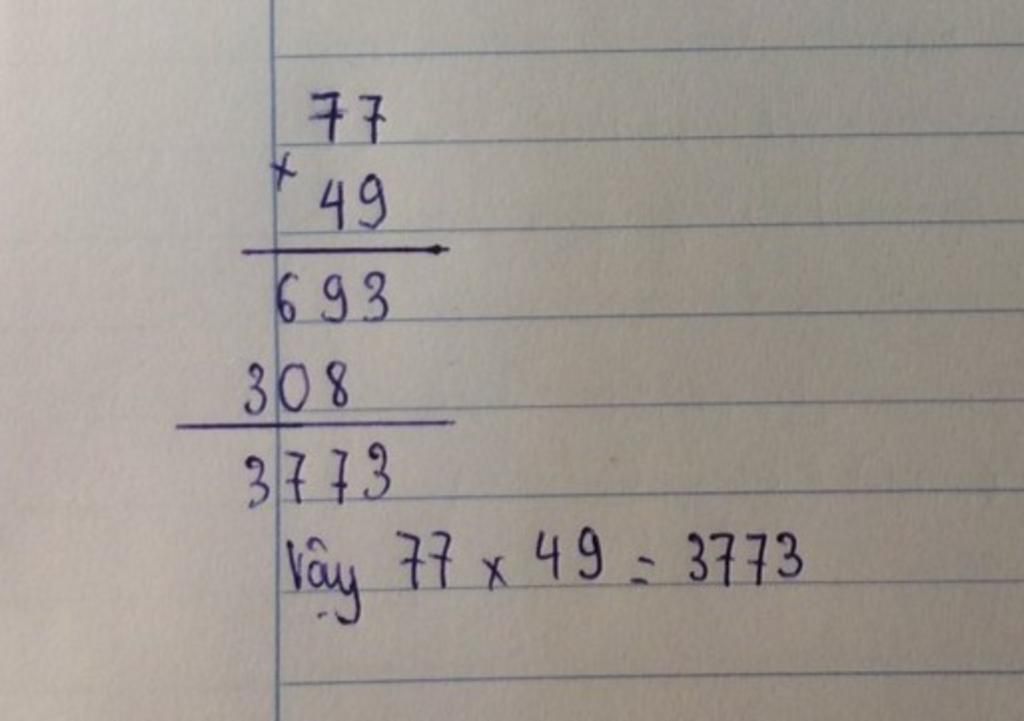 77
×
49
693
308
3773
Vậy 77 × 49 = 3773